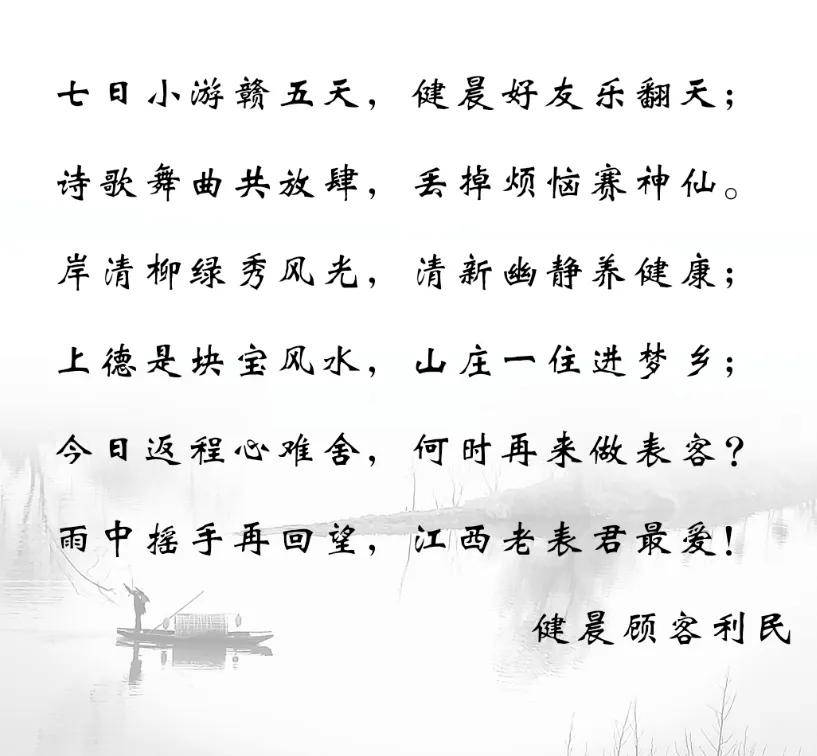 七日小游赣五天，健晨好友乐翻天；
诗歌舞曲共放肆，丢掉烦恼赛神仙。
岸清柳绿秀风光，清新幽静养健康；
上德是块宝风水，山庄一住进梦乡；
今日返程心难舍，何时再来做表客？
雨中摇手再回望，江西老表君最爱！
健晨顾客利民